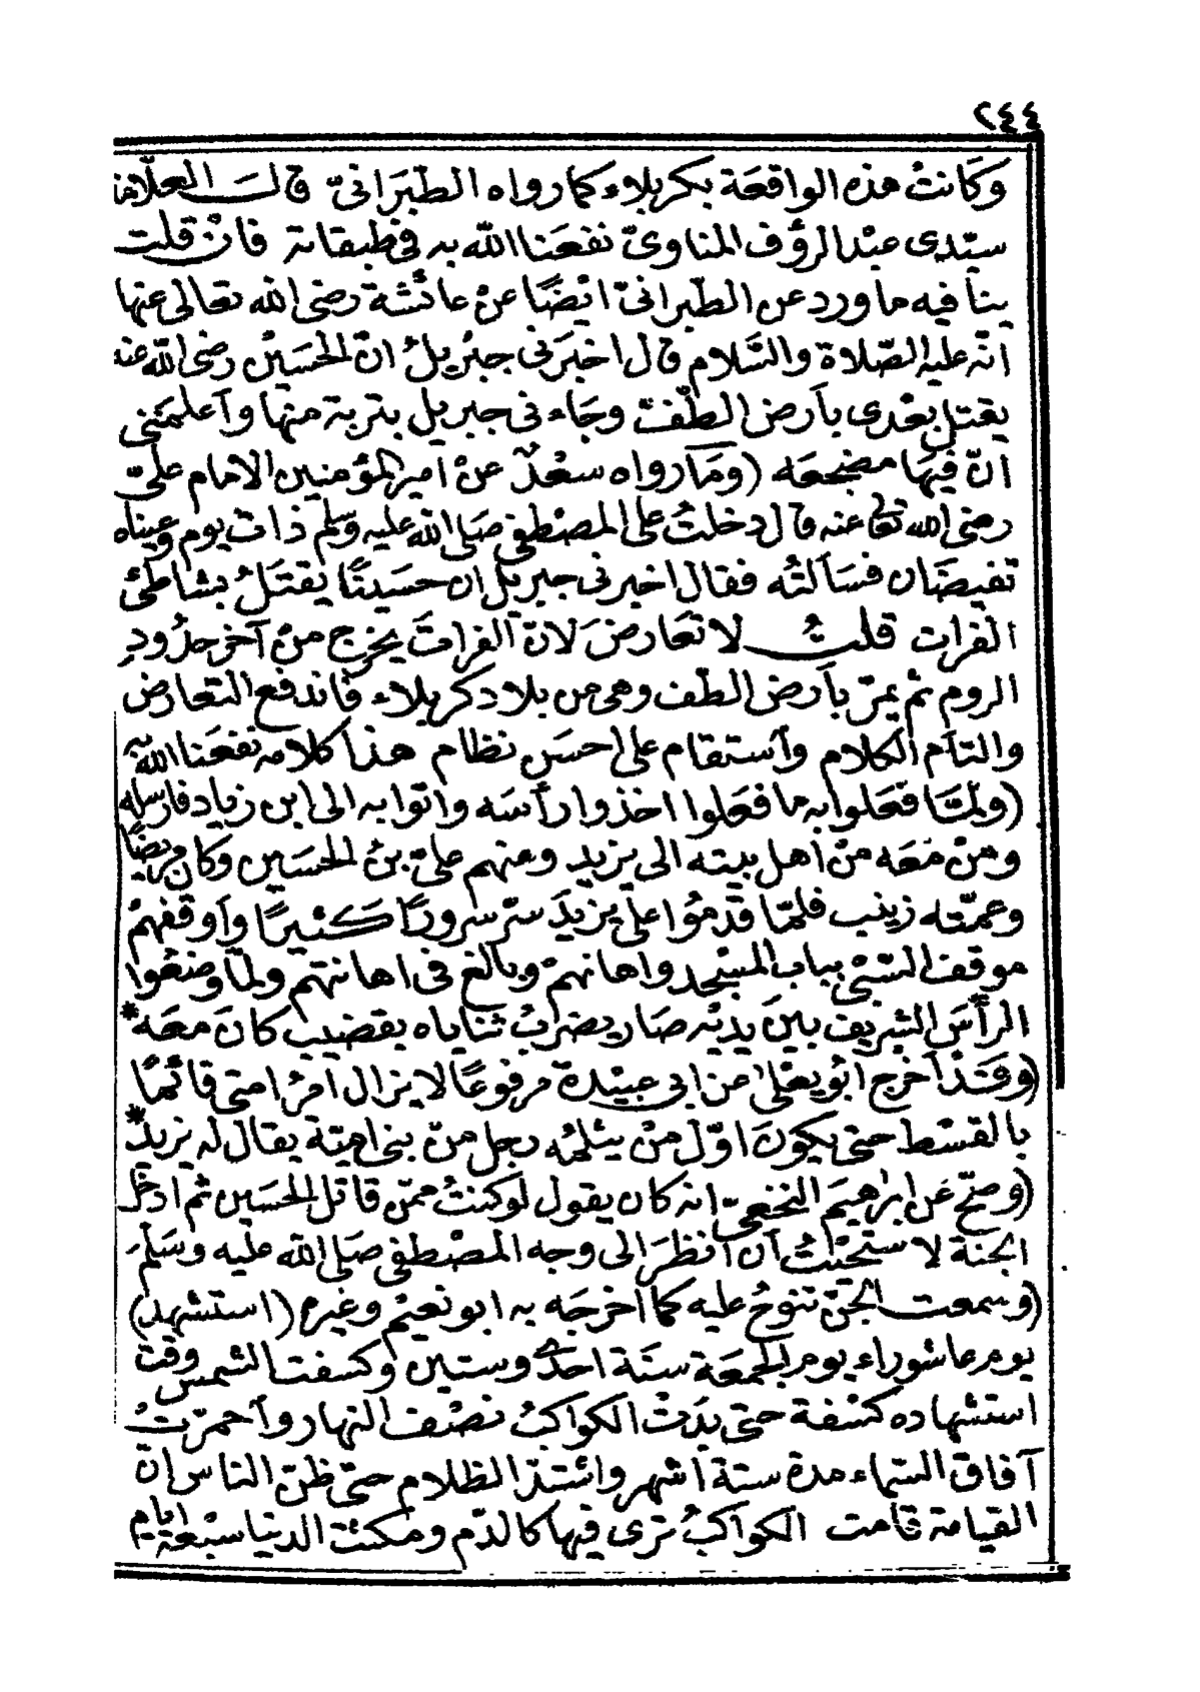 ٢٤٤
وكانت هذه الواقعة بكربلاء كما رواه الطبرانىّ قالـــ العلّامة
سيّدى عبد الرؤف المناوىّ نفعنا الله به فى طبقاته فان قلت
ينافيه ما ورد عن الطبرانىّ ايضًا عن عائشة رضى الله تعالى عنها
انّه عليه الصّلاة والسّلام قال اخبرنى جبريلُ انّ الحسين رضى الله عنه
يقتل بعدى بأرض الطّفّ وجاءنى جبريل بتربة منها وأعلمنى
انّ فيها مضجعه (وما رواه سعدٌ عن امير المؤمنين الامام علىّ
رضى الله تعالى عنه قال دخلتُ على المصطفى صلى الله عليه وسلم ذات يوم وعيناه
تفيضان فسألتُه فقال اخبرنى جبريل ان حسينًا يقتلُ بشاطئ
الفرات قلتــُ لا تعارضَ لانّ الفراتَ يخرج منْ آخر حدُودِ
الروم ثم يمرّ بأرض الطّف وهى من بلاد كربلاء فاندفع التعارض
والتأم الكلام وأستقام على احسن نظام هذا كلامه نفعنا الله به
(ولمّا فعلوا به ما فعلوا اخذوا رأسه واتوا به الى ابن زياد فارسله
ومنْ معه منْ أهل بيته الى يزيد ومنهم علىّ بنُ الحسين وكان مريضًا
وعمّته زينب فلمّا قدمُوا على يزيدَ سرّ سرورًا كثيرًا وأوقفهمْ
موقف السّبى بباب المسْجد واهانهمْ وبالغ فى اهانتهم ولمّا وضعُوا
الرأسَ الشريف بين يديْه صار يضربُ ثناياه بقضيب كانَ معه *
(وقدْ أخرج ابُو يعْلى عن ابى عبيْدة مرفوعًا لا يزال أمْرُ امتى قائمًا
بالقسْط حتى يكونَ اوّل منْ يثلمُه رجل منْ بنى اميّة يقال له يزيدُ *
(وصحّ عَن ابراهيمَ النخعىّ انه كان يقول لو كنتُ ممّن قاتل الحسين ثم ادخل
الجنة لاستحْيَيْتُ أن أنظرَ الى وجه المصْطفى صلى الله عليه وسلم
(وسمعت الجنّ تنوحُ عليه كما أخرجه به ابو نعيْم وغيره (استشهد)
يوم عاشوراء يوم الجمعة سنة احدى وستين وكسفت الشمس وقت
استشهاده كسْفة حتى بدَتْ الكواكبُ نصْف النهار وأحمرّتْ
آفاق السّماء مدة ستة اشهر واشتدّ الظلام حتى ظنّ الناس انّ
القيامة قامت الكواكبُ ترى فيها كالدّم ومكثت الدنيا سبْعة ايام